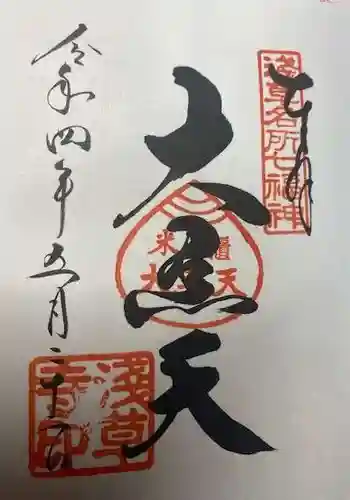 奉拝
浅草名所七福神
大黒天
令和四年五月二十一日
浅草
寺印